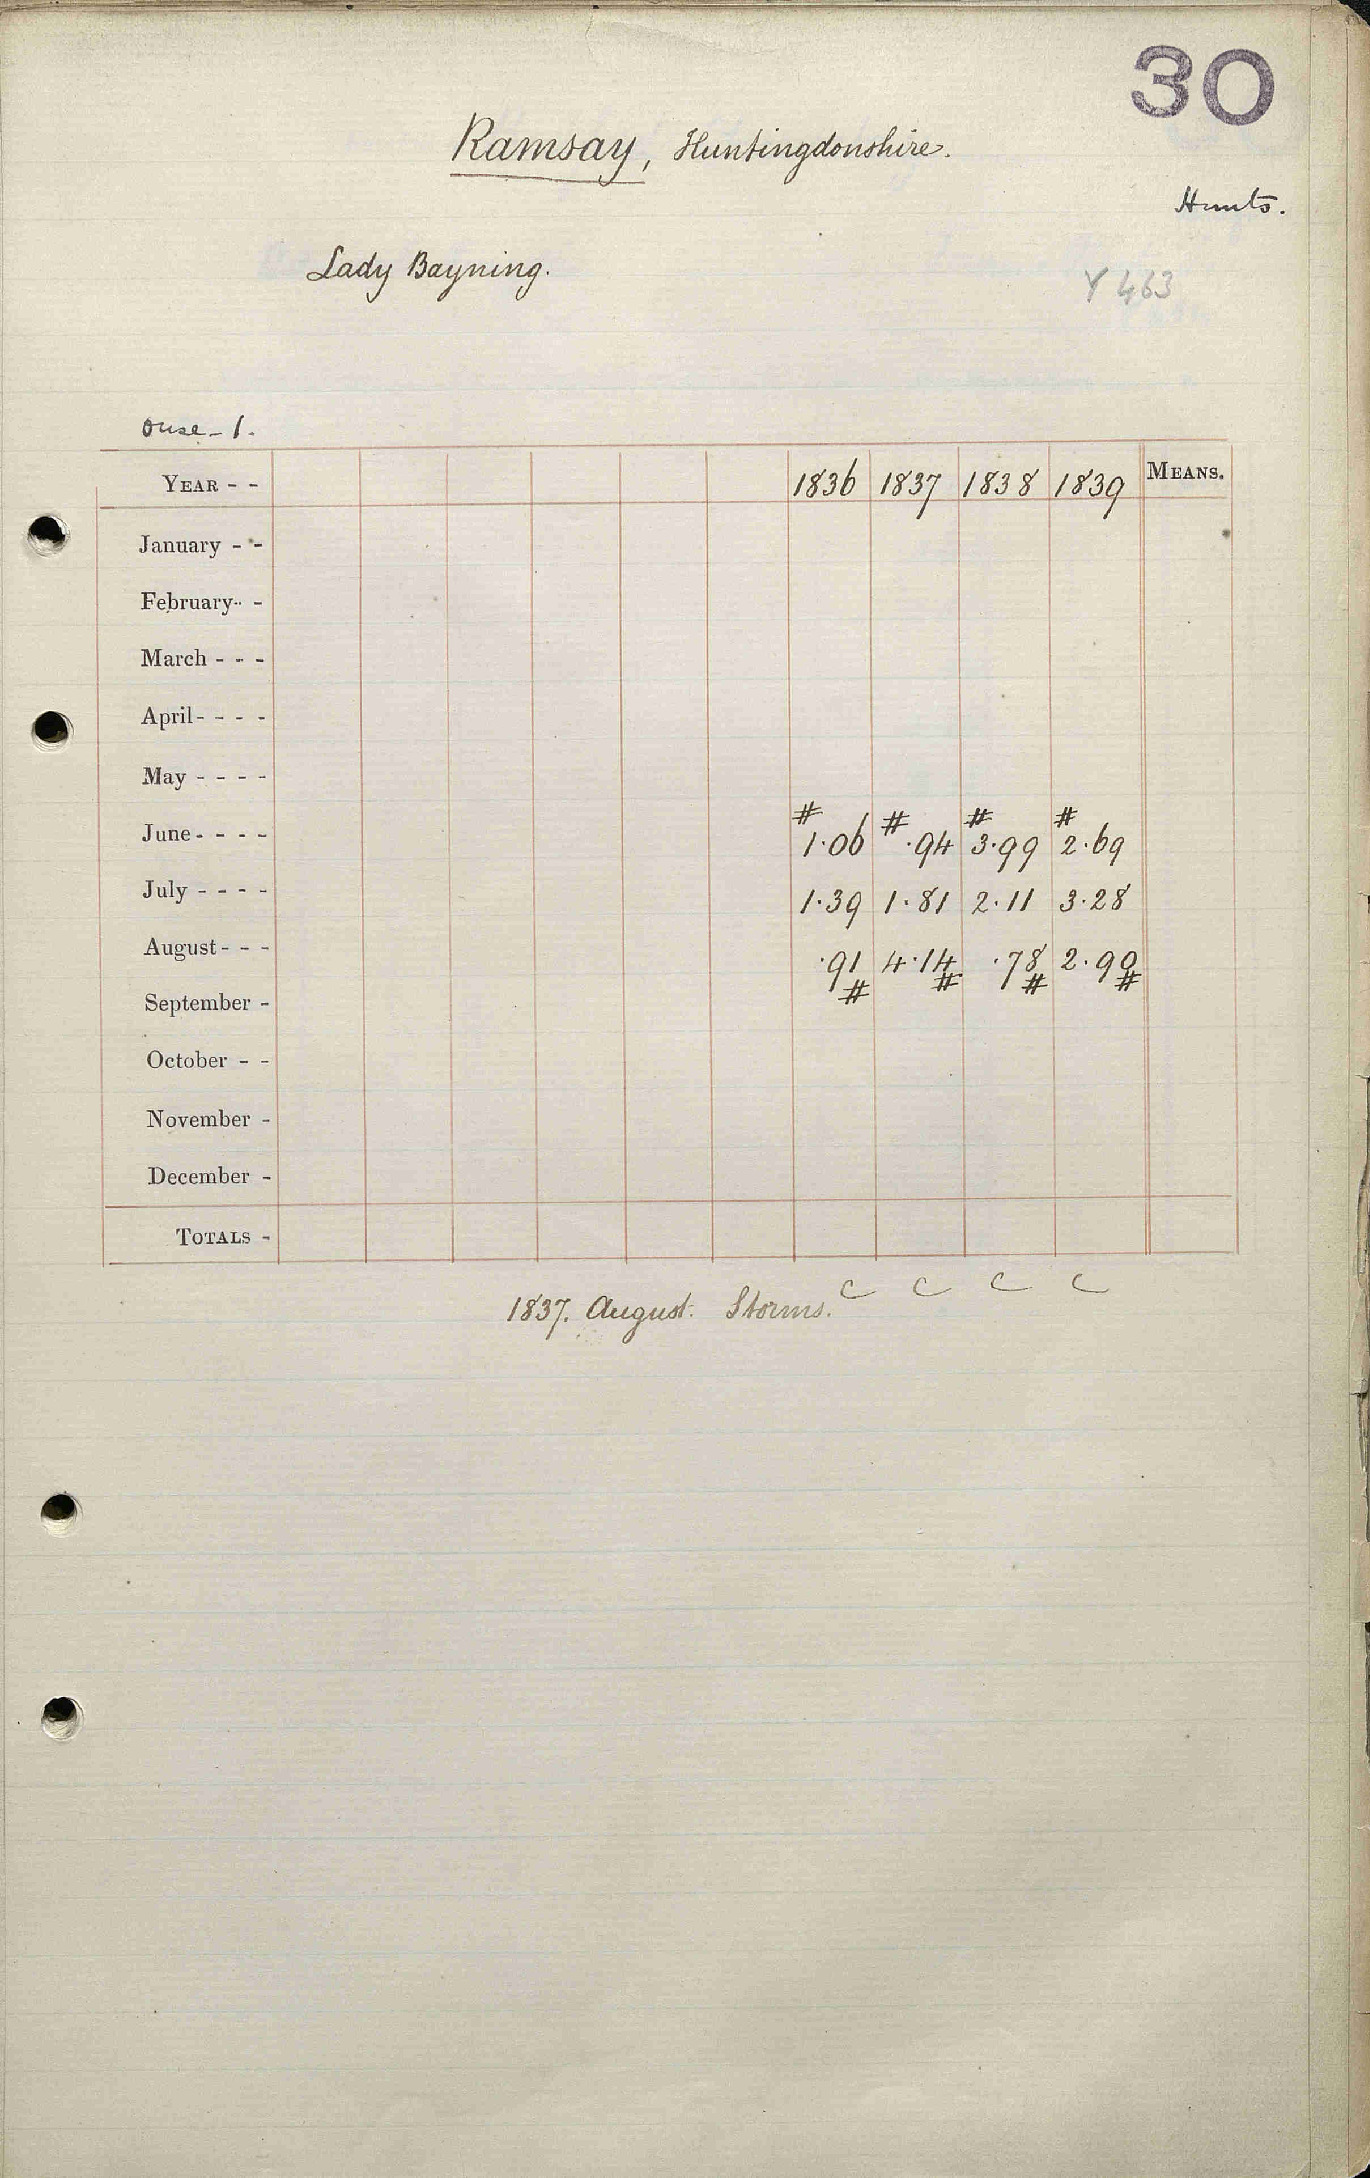 30
Ramsay, Huntingdonshire.
Hunts.
Lady Bayning.
Y 463
Ouse - 1.
YEAR - - 1836 1837 1838 1839 MEANS.
January - -
February - -
March - - -
April - - - -
May - - - -
# # # #
June - - - - 1.06 .94 3.99 2.69
July - - - - 1.39 1.81 2.11 3.28
August - - - .91 4.14 .78 2.90
# # # #
September -
October - -
November -
December -
TOTALS -
C C C C
1837. August. Storms.